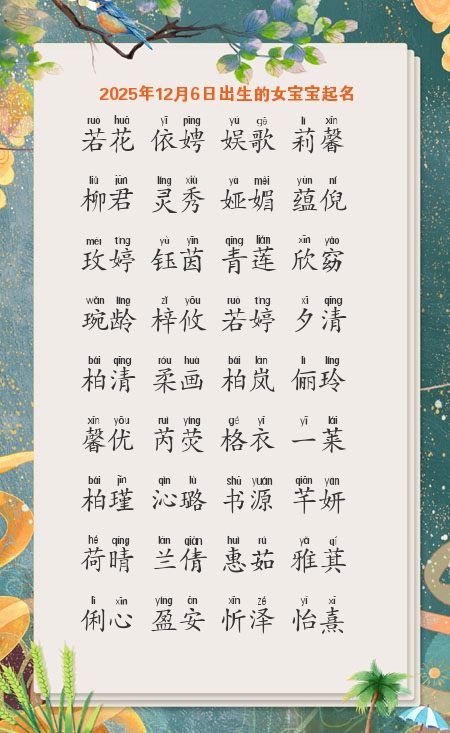 2025年12月6日出生的女宝宝起名
ruò huā yī pīng yú gē lì xīn
若花 依娉 娱歌 莉馨
liǔ jūn líng xiù yà mèi yùn ní
柳君 灵秀 娅媚 蕴倪
méi tíng yù yīn qīng lián xīn yǎo
玫婷 钰茵 青莲 欣窈
wǎn líng zǐ yōu ruò tíng xī qīng
琬龄 梓攸 若婷 夕清
bǎi qīng róu huà bǎi lán lì líng
柏清 柔画 柏岚 俪玲
xīn yōu ruì yíng gé yī yī lái
馨优 芮荧 格衣 一莱
bǎi jǐn qìn lù shū yuán qiān yán
柏瑾 沁璐 书源 芊妍
hé qíng lán qiàn huì rú yǎ qí
荷晴 兰倩 惠茹 雅萁
lì xīn yíng ān xīn zé yí xī
俐心 盈安 忻泽 怡熹